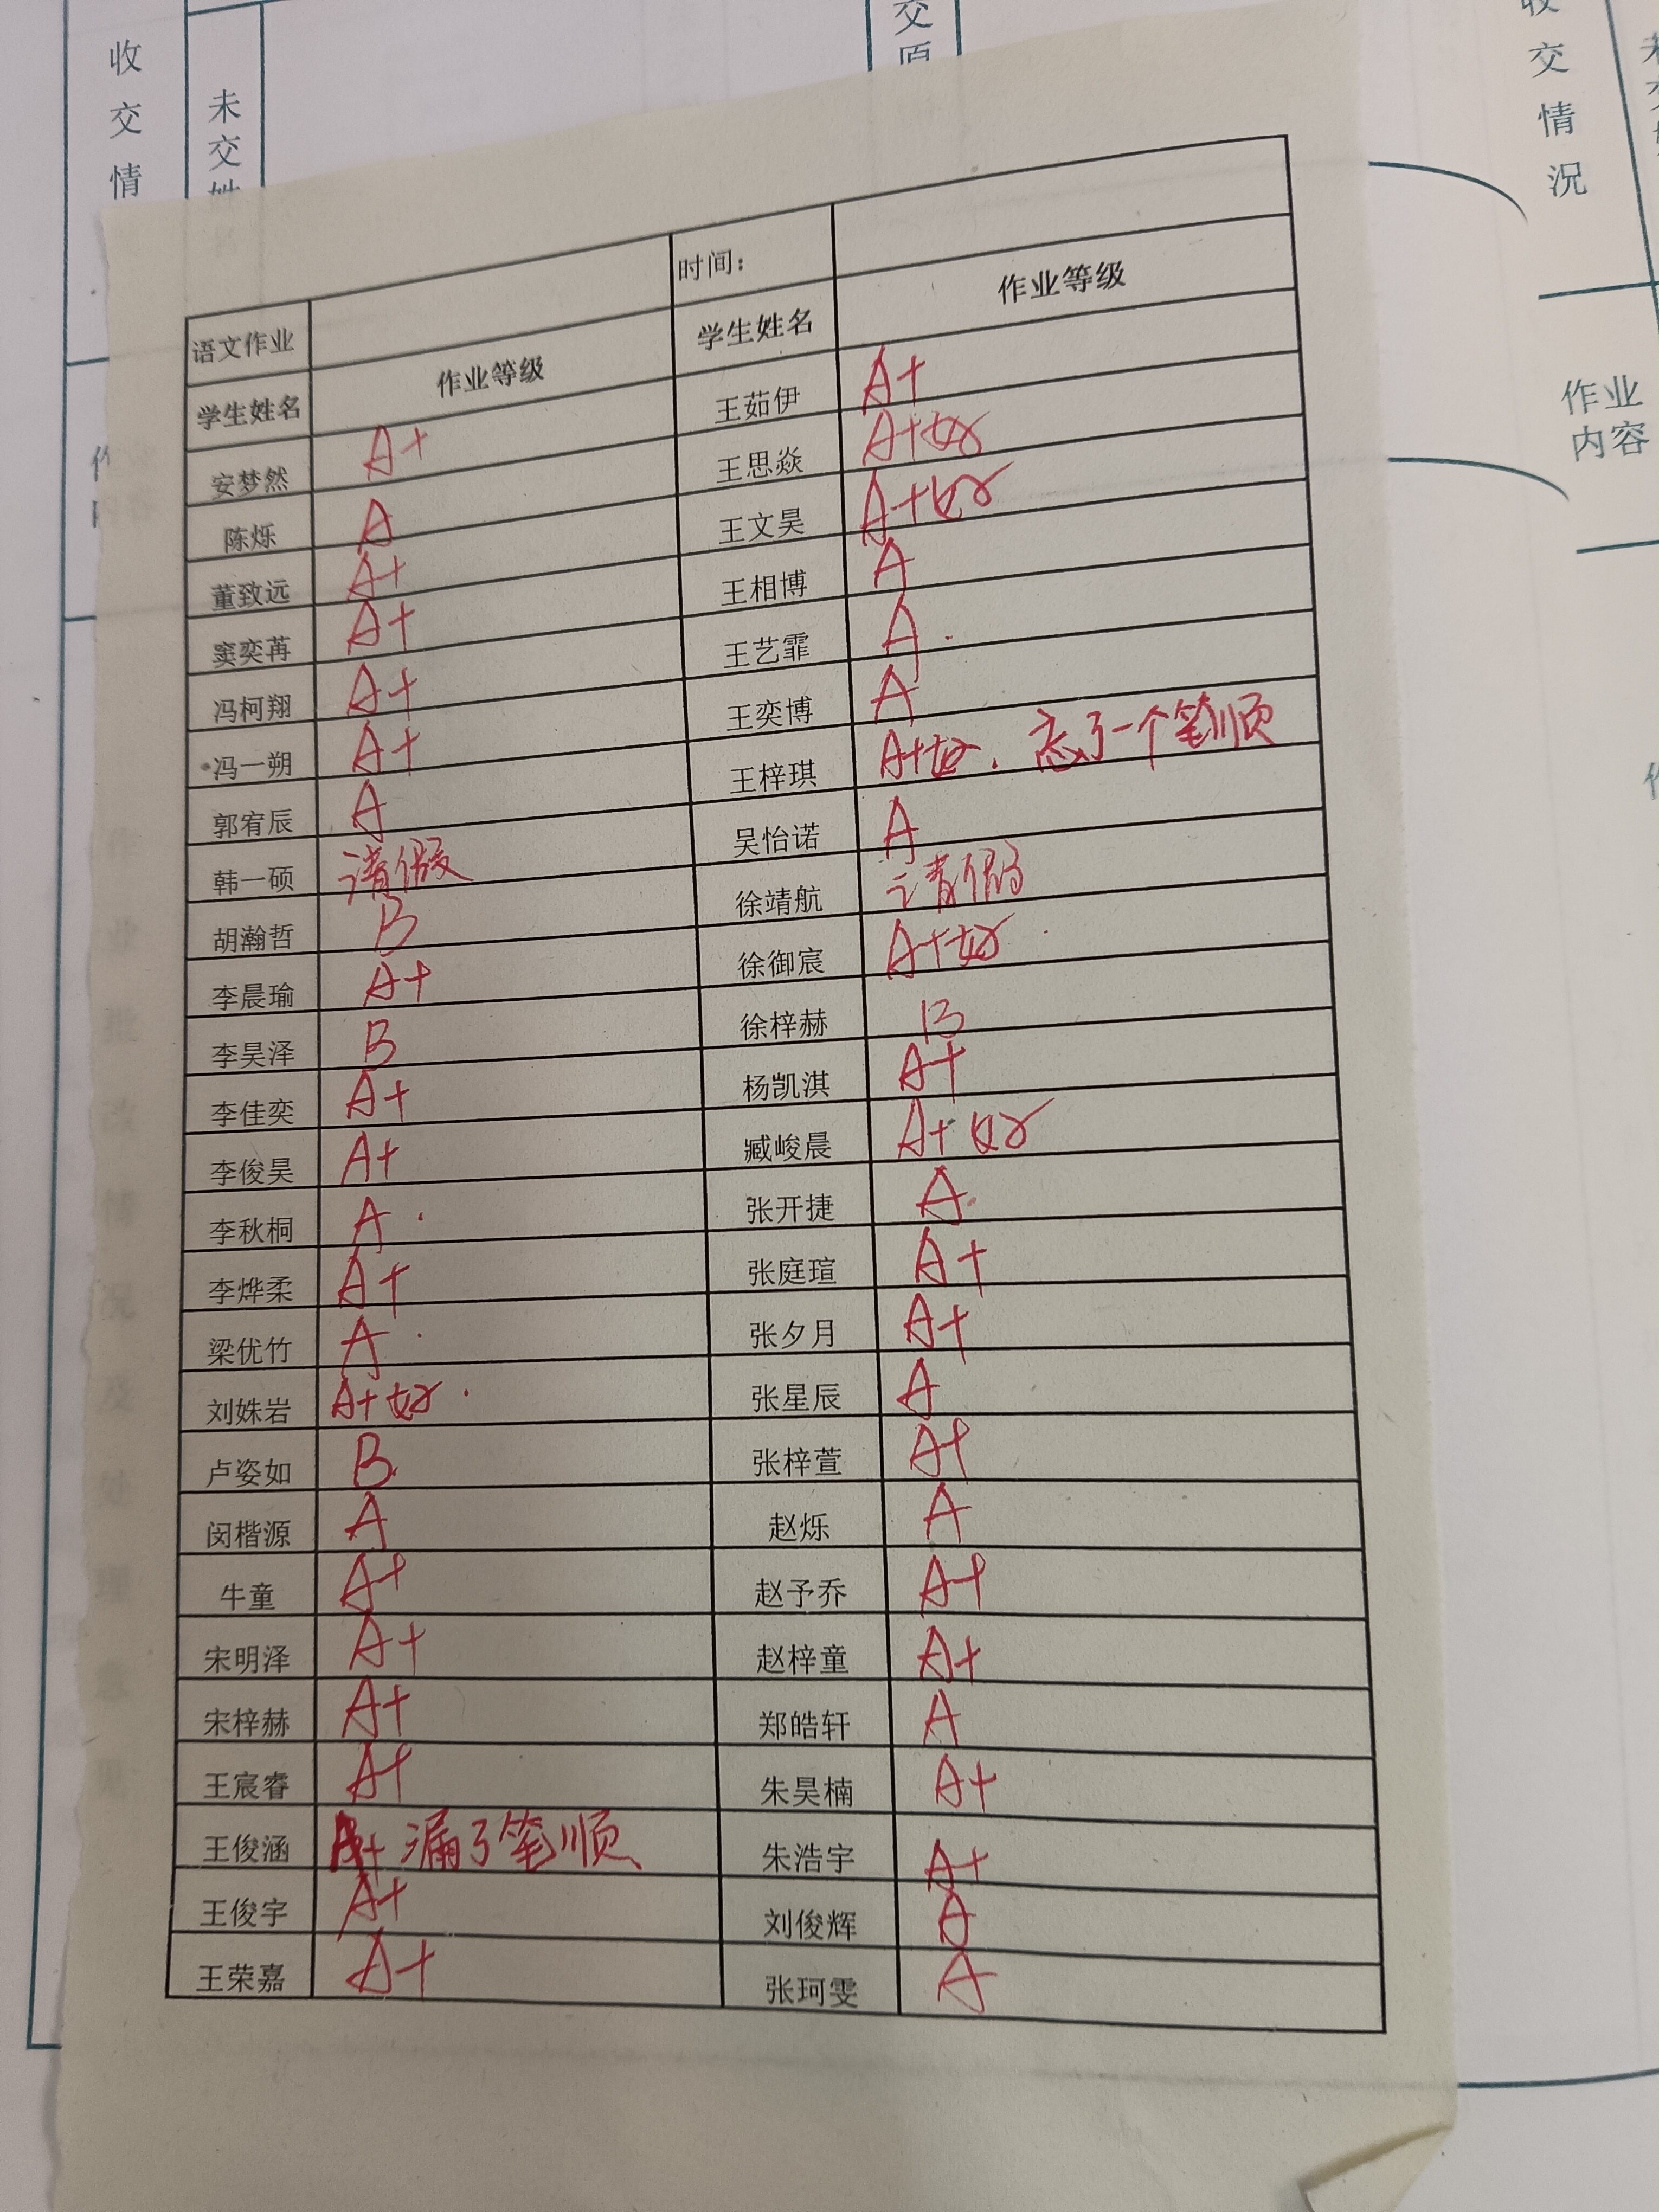 收交情
未交姓名
交原
收交情况
未交姓
作业内容
时间：
语文作业
学生姓名 作业等级 学生姓名 作业等级
安梦然 A+ 王茹伊 A+
陈烁 A 王思焱 A+好
董致远 A+ 王文昊 A+好
窦奕苒 A+ 王相博 A
冯柯翔 A+ 王艺霏 A.
冯一朔 A+ 王奕博 A
郭宥辰 A 王梓琪 A+好. 忘了一个笔顺
韩一硕 请假 吴怡诺 A
胡瀚哲 B 徐靖航 请假
李晨瑜 A+ 徐御宸 A+好
李昊泽 B 徐梓赫 B
李佳奕 A+ 杨凯淇 A+
李俊昊 A+ 臧峻晨 A+好
李秋桐 A. 张开捷 A.
李烨柔 A+ 张庭瑄 A+
梁优竹 A. 张夕月 A+
刘姝岩 A+好. 张星辰 A
卢姿如 B. 张梓萱 A+
闵楷源 A 赵烁 A
牛童 A+ 赵予乔 A+
宋明泽 A+ 赵梓童 A+
宋梓赫 A+ 郑皓轩 A
王宸睿 A+ 朱昊楠 A+
王俊涵 A+ 漏了笔顺 朱浩宇 A+
王俊宇 A+ 刘俊辉 A
王荣嘉 A+ 张珂雯 A
作业批改情况及处理意见